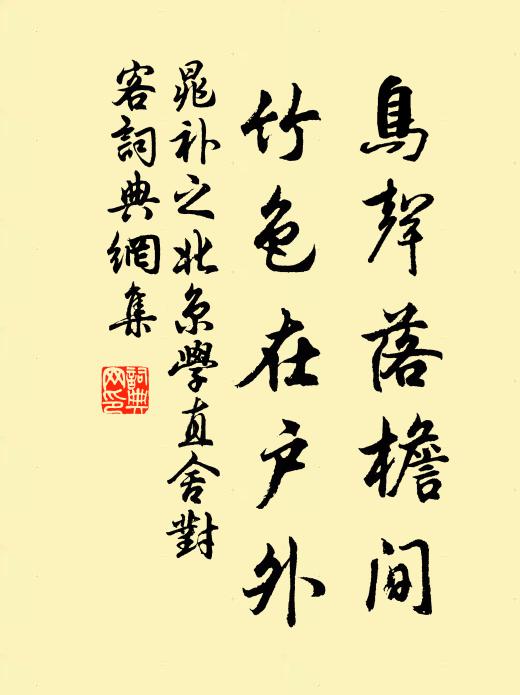 鳥聲落檐间
竹色在户外
晁补之北京學直舍對
客詞典網集
詞典网印